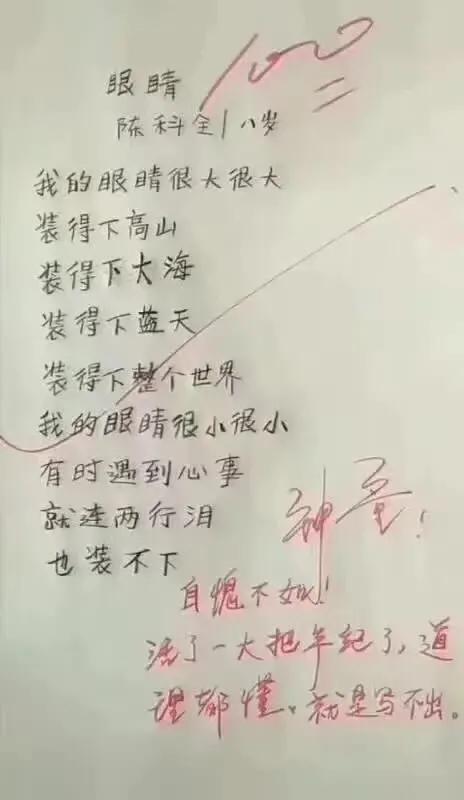 100
眼睛
陈科全/八岁
我的眼睛很大很大
装得下高山
装得下大海
装得下蓝天
装得下整个世界
我的眼睛很小很小
有时遇到心事
就连两行泪
也装不下
神童!
自愧不如!
活了一大把年纪了,道
理都懂。就是写不出。